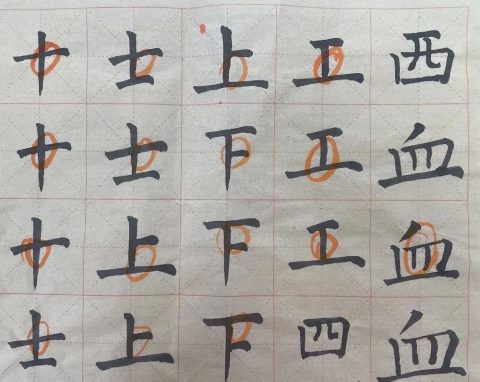 十十十士
士士上上
上下下下
工工工四
西血血血